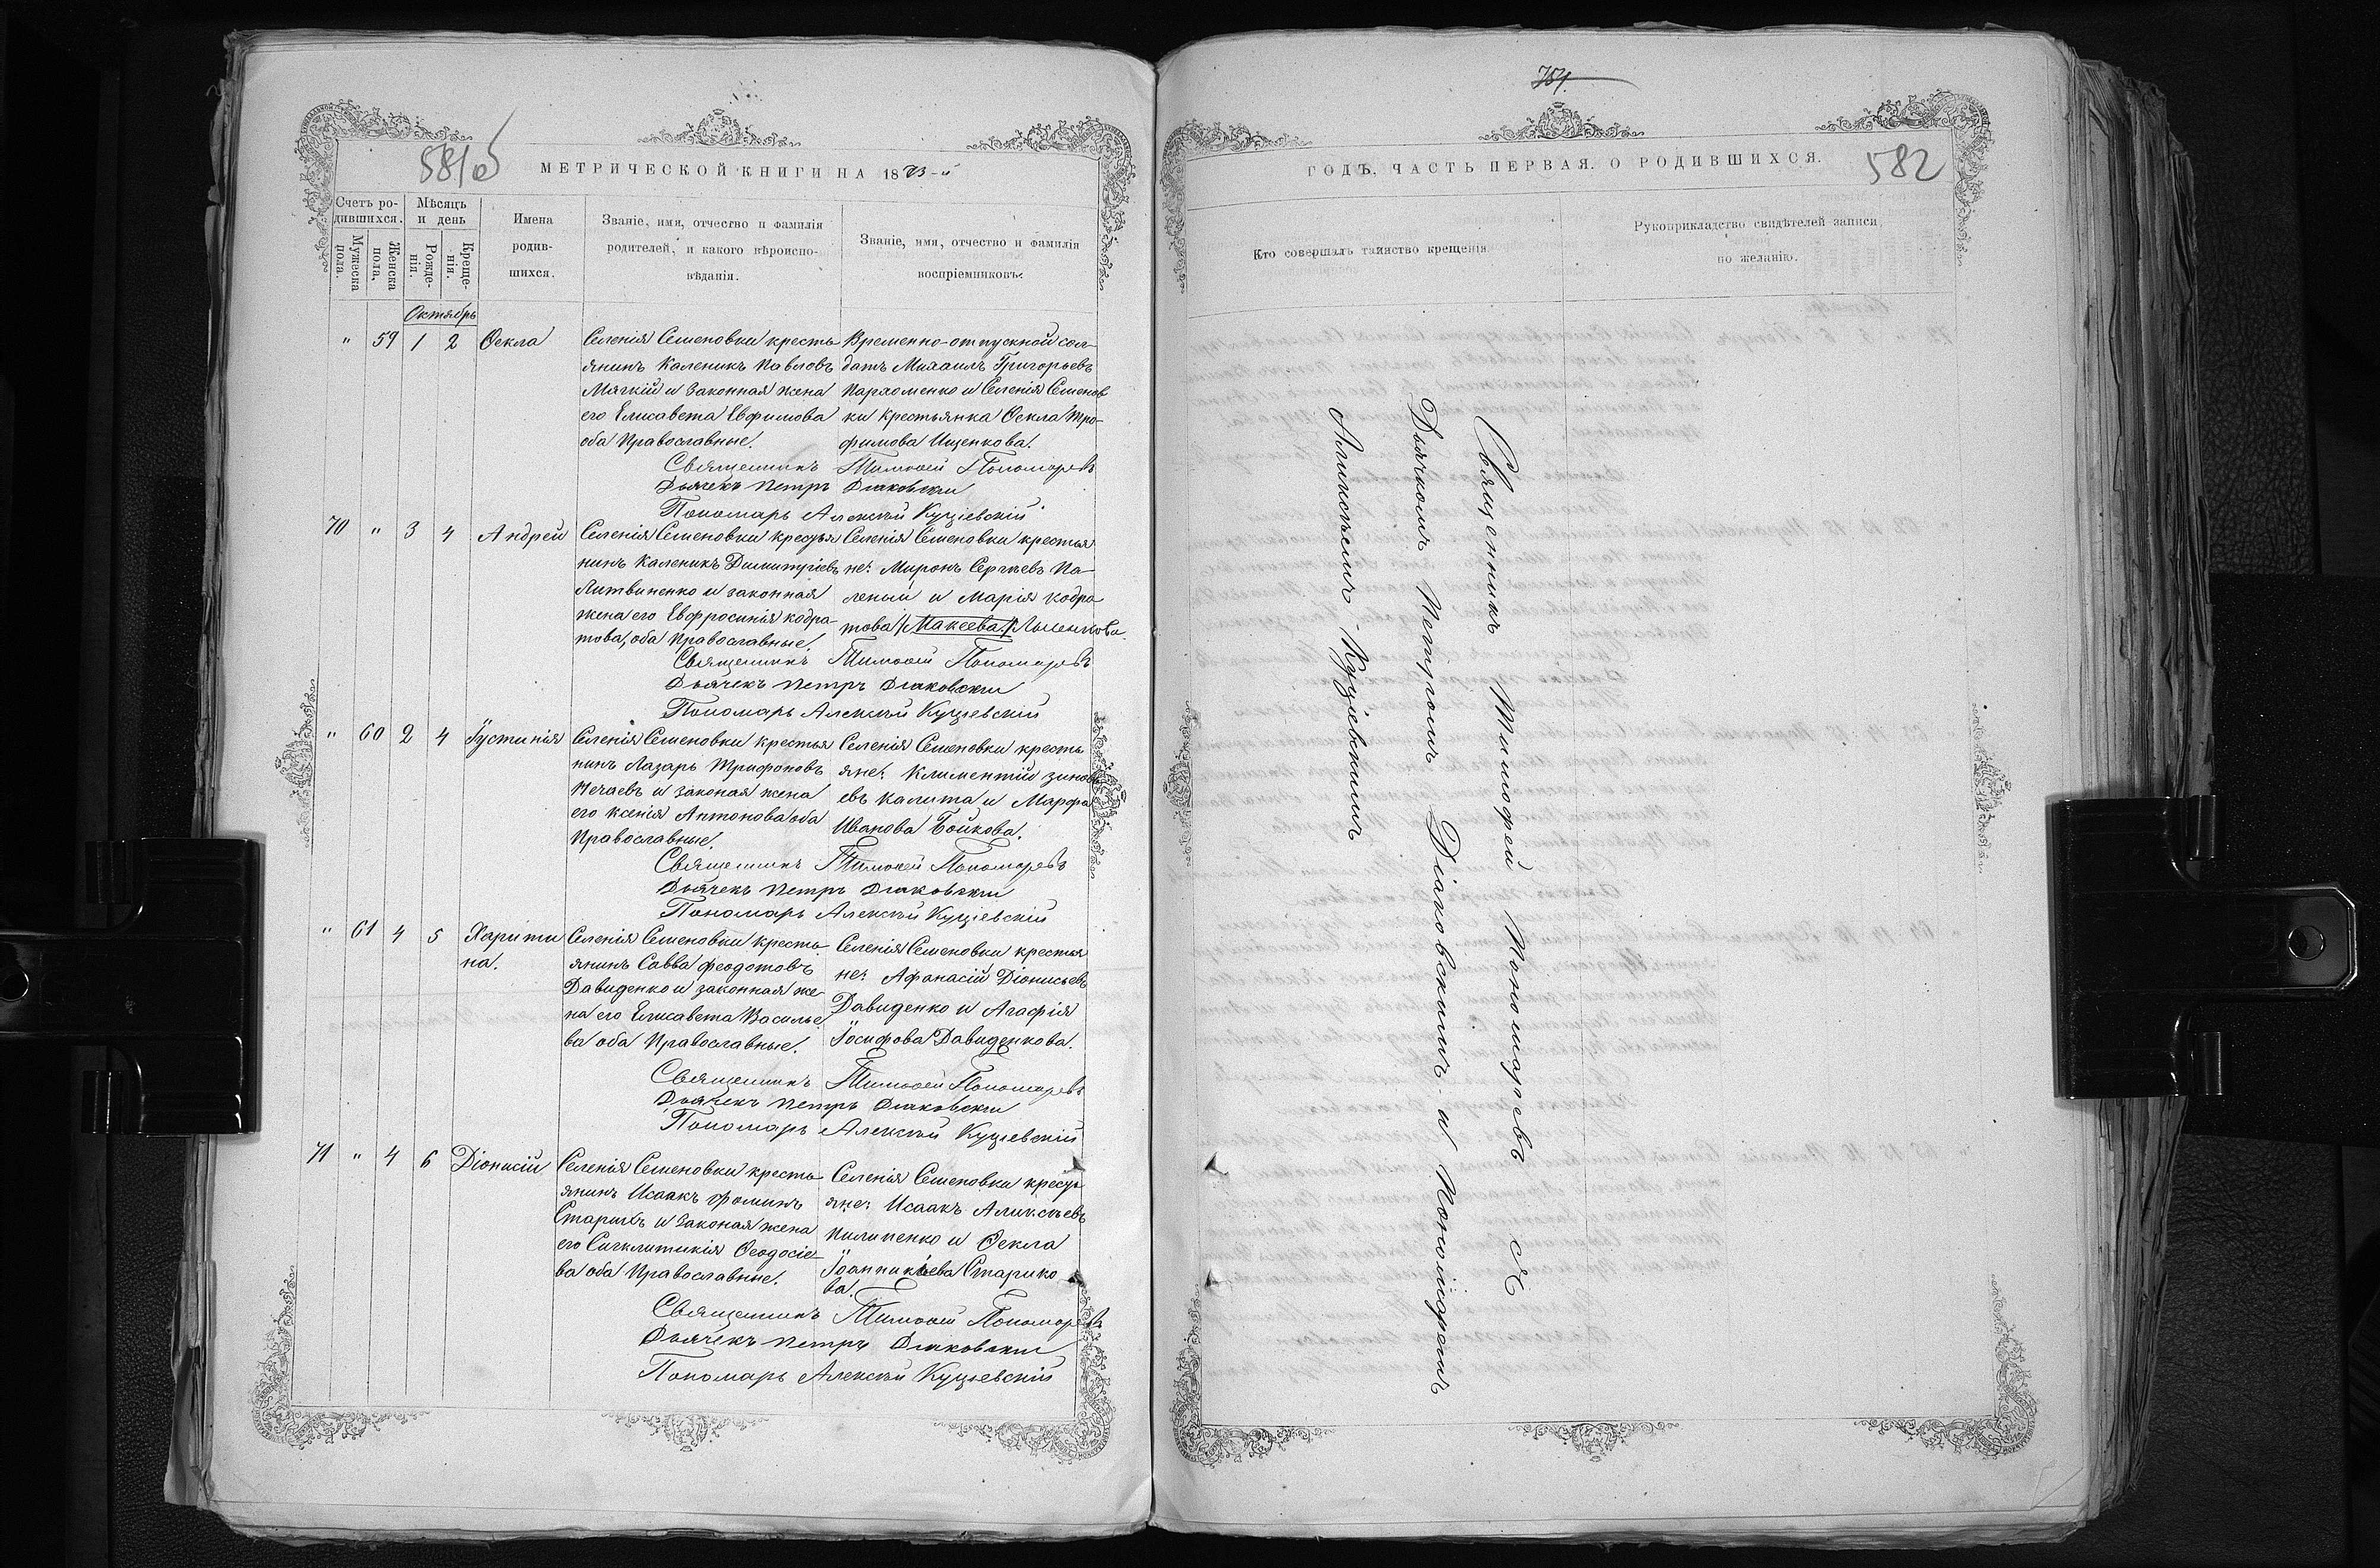 581об
МЕТРИЧЕСКОЙ КНИГИ НА 1873-й
Счетъ ро-
дившихся.
Мужеска
пола.
Женска
пола.
Мѣсяцъ
и день
Рожде-
нія.
Креще-
нія.
Имена
родив-
шихся.
Званіе, имя, отчество и фамилія
родителей, и какого вѣроиспо-
вѣданія.
Званіе, имя, отчество и фамилія
воспріемниковъ.
Октябрь
" 59 1 2 Ѳекла
Селенія Семеновки кресть
янинъ Каленикъ Павловъ
Мягкій и законная жена
его Елисавета Евфимова
оба Православные.
Временно-отпускной сол-
датъ Михаилъ Григорьевъ
Пархоменко и Селенія Семенов
ки крестьянка Ѳекла Тро-
фимова Ищенкова.
Священникъ Тимоѳей Пономаревъ
Дьячекъ Петръ Діаковскій
Пономарь Алексѣй Куціевскій
70 " 3 4 Андрей
Селенія Семеновки крестья
нинъ Каленикъ Димитріевъ
Литвиненко и законная
жена его Евфросинія кодра-
това, оба Православные.
Селенія Семеновки крестья
не: Миронъ Сергѣевъ Па-
леный и Марія кодра
това /Макеева/
Священникъ Тимоѳей Пономаревъ
Дьячекъ Петръ Діаковскій
Пономарь Алексѣй Куціевскій
" 60 2 4 Іустинія
Селенія Семеновки крестья
нинъ Лазарь Трифоновъ
Нечаевъ и законая жена
его ксенія Антонова оба
Православные.
Селенія Семеновки кресть
яне: Климентій зиновь
евъ калита и Марфа
Иванова Бойкова.
Священникъ Тимоѳей Пономаревъ
Дьячекъ Петръ Діаковскій
Пономарь Алексѣй Куціевскій
" 61 4 5 Харити
на.
Селенія Семеновки кресть
янинъ Савва феодотовъ
Давиденко и законная же
на его Елисавета Василье
ва оба Православные.
Селенія Семеновки крестья
не: Афанасій Діонисьевъ
Давиденко и Агафія
Іосифова Давиденкова.
Священникъ Тимоѳей Пономаревъ
Дьячекъ Петръ Діаковскій
Пономарь Алексѣй Куціевскій
71 " 4 6 Діонисій
Селенія Семеновки кресть
янинъ Исаакъ фоминъ
Старикъ и законая жена
его Сигклитикія Ѳеодосіе-
ва оба Православные.
Селенія Семеновки кресть
яне: Исаакъ Алексѣевъ
Пилипенко и Ѳекла
Іоанникіева Старико
ва.
Священникъ Тимоѳей Пономаревъ
Дьячекъ Петръ Діаковскій
Пономарь Алексѣй Куціевскій
751.
ГОДЪ, ЧАСТЬ ПЕРВАЯ. О РОДИВШИХСЯ.
582
Кто совершалъ таинство крещенія
Рукоприкладство свидѣтелей записи
по желанію.
Священникъ Тимофей Пономаревъ с
Дьячкомъ Петромъ Діаковскимъ и Пономаремъ
Алексѣемъ Куціевскимъ